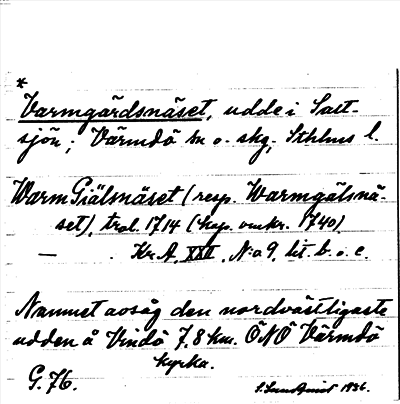 *
Varmgärdsnäset, udde i Salt-
sjön; Värmdö sn o. skg, Sthlms l.
WarmGiälsnäset (resp. Warmgälsnä-
set), trol. 1714 (kop. omkr. 1740).
— Kr.A. XXI N:o 9, lit. b. o. c.
Namnet avsåg den nordvästligaste
udden å Vindö 7,8 km. ÖNÖ Värmdö
kyrka.
G. 76.
1936.